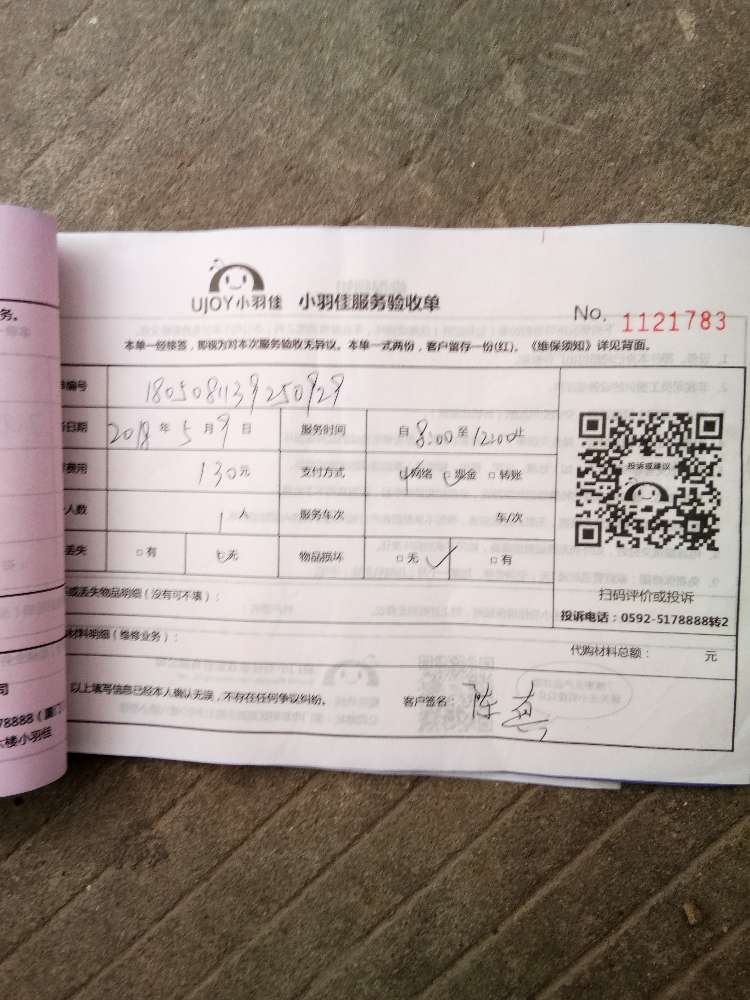 务。
UJOY小羽佳 小羽佳服务验收单
No. 1121783
本单一经接签，即视为对本次服务验收无异议。本单一式两份，客户留存一份(红)。《维保须知》详见背面。
编号 1805081139250929
日期 2018 年 5 月 9 日 服务时间 自 8:00 至 12:00止
费用 130元 支付方式 □网络 □现金 □转账
人数 1 人 服务车次 车/次
丢失 □有 □无 物品损坏 □无 □有
投诉或建议
扫码评价或投诉
投诉电话：0592-5178888转2
或丢失物品明细（没有可不填）：
材料明细（维修业务）：
代购材料总额： 元
以上填写信息已经本人确认无误，不存在任何争议纠纷。 客户签名： 陈
司
78888（厦门
楼小羽佳